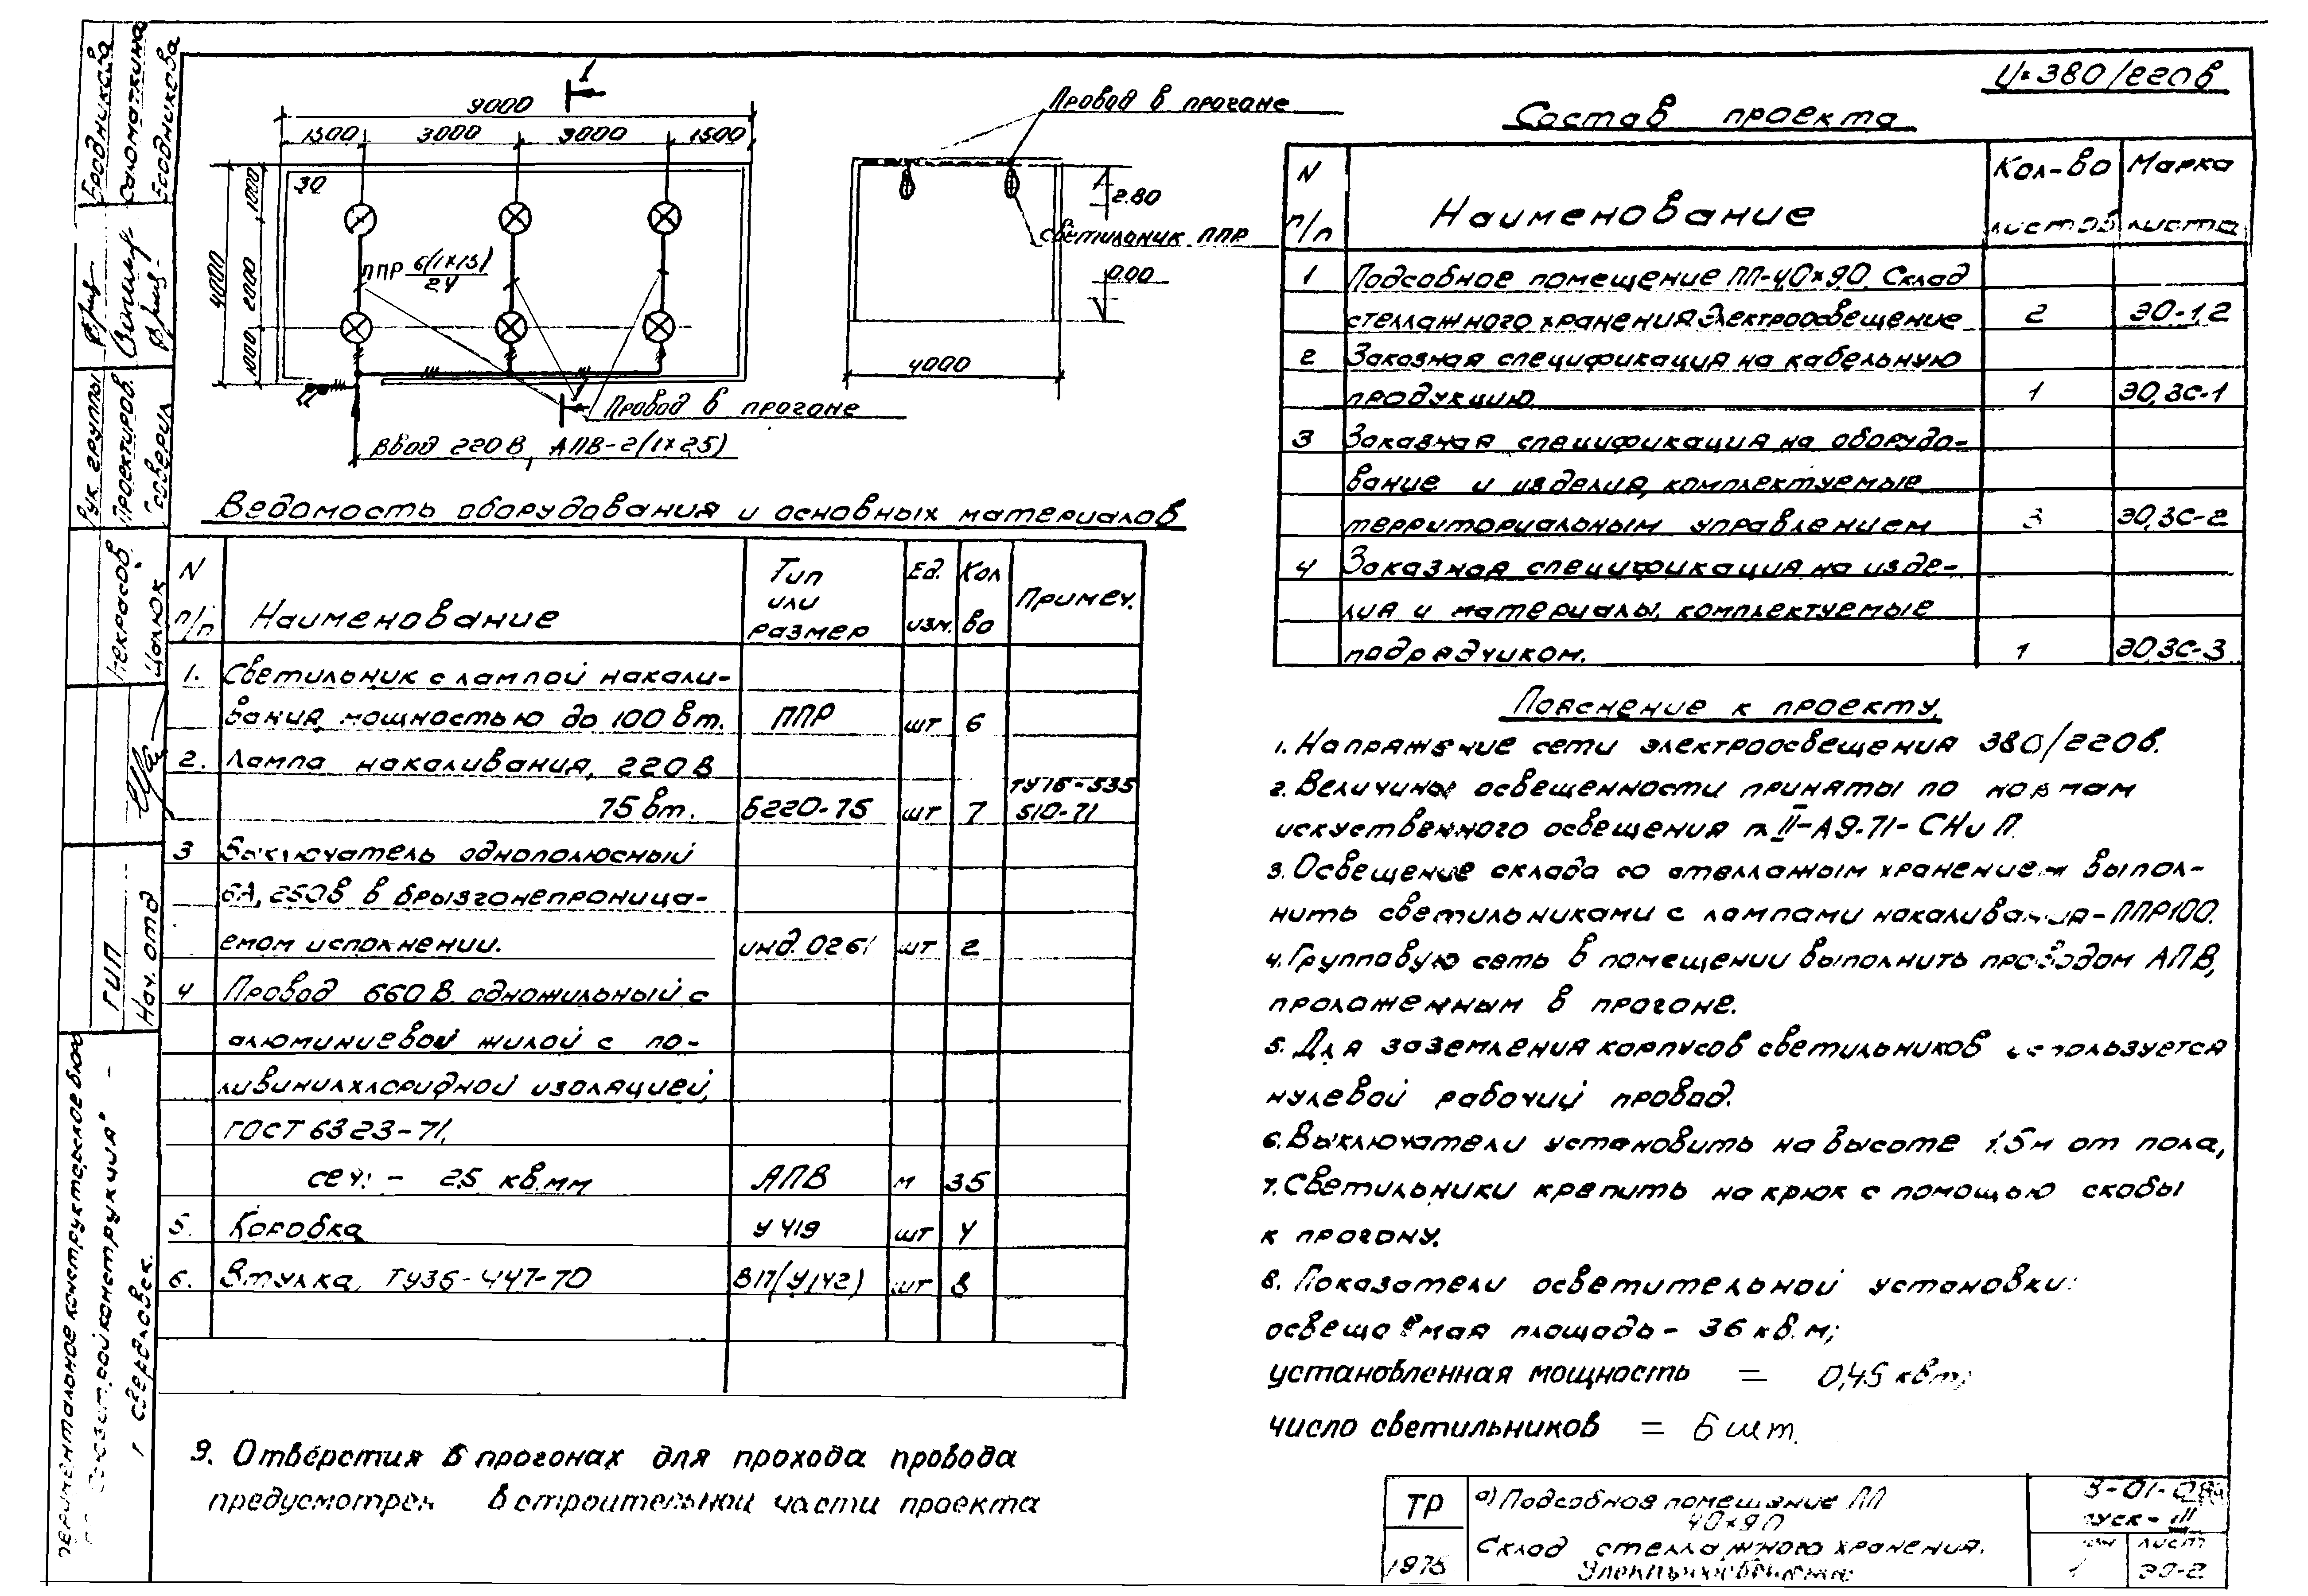 U=380/220в
1
9000
1500 3000 3000 1500
30
1000
2000
1000
4000
ППР 6(1×75)/2.4
Провод в прогоне
Ввод 220 В, АПВ-2(1×2,5)
Провод в прогоне
2.80
светильник ППР
0.00
4000
Ведомость оборудования и основных материалов
N п/п
Наименование
Тип или размер
Ед. изм.
Кол во
Примеч.
1. Светильник с лампой накали-
вания, мощностью до 100 вт. ППР шт 6
2. Лампа накаливания, 220 В
75 вт. Б220-75 шт 7 ТУ16-535 510-71
3 Выключатель однополюсный
6А, 250в в брызгонепроница-
емом исполнении. инд. 0261 шт 2
4 Провод 660 В. одножильный с
алюминиевой жилой с по-
ливинилхлоридной изоляцией,
ГОСТ 6323-71,
сеч. - 2,5 кв.мм АПВ м 35
5. Коробка У419 шт 4
6. Втулка, ТУ36-447-70 В17(У142) шт 8
9. Отверстия в прогонах для прохода провода
предусмотрен в строительной части проекта
Состав проекта
N п/п
Наименование
Кол-во листов
Марка листа
1 Подсобное помещение ПП-40×90. Склад
стеллажного хранения. Электроосвещение 2 ЭО-1,2
2 Заказная спецификация на кабельную
продукцию. 1 ЭО,ЗС-1
3 Заказная спецификация на оборудо-
вание и изделия, комплектуемые
территориальным управлением 3 ЭО,ЗС-2
4 Заказная спецификация на изде-
лия и материалы, комплектуемые
подрядчиком. 1 ЭО,ЗС-3
Пояснение к проекту.
1. Напряжение сети электроосвещения 380/220в.
2. Величины освещенности приняты по нормам
искуственного освещения п. II-А9-71-СНиП.
3. Освещение склада со стеллажным хранением выпол-
нить светильниками с лампами накаливания-ППР100.
4. Групповую сеть в помещении выполнить проводом АПВ,
проложенным в прогоне.
5. Для заземления корпусов светильников используется
нулевой рабочий провод.
6. Выключатели установить на высоте 1.5м от пола,
7. Светильники крепить на крюк с помощью скобы
к прогону.
8. Показатели осветительной установки:
освещаемая площадь - 36 кв.м;
установленная мощность = 0,45 квт;
число светильников = 6 шт.
ТР
1975
а) Подсобное помещение ПП
40×90
Склад стеллажного хранения.
Электроосвещение
лист
1 ЭО-2
Бродникова
Саломаткина
Бродникова
Рук. группы
Проектиров.
Проверил
Некрасов
Цалюк
ГИП
Нач. отд
конструкторское бюро
г Свердловск.